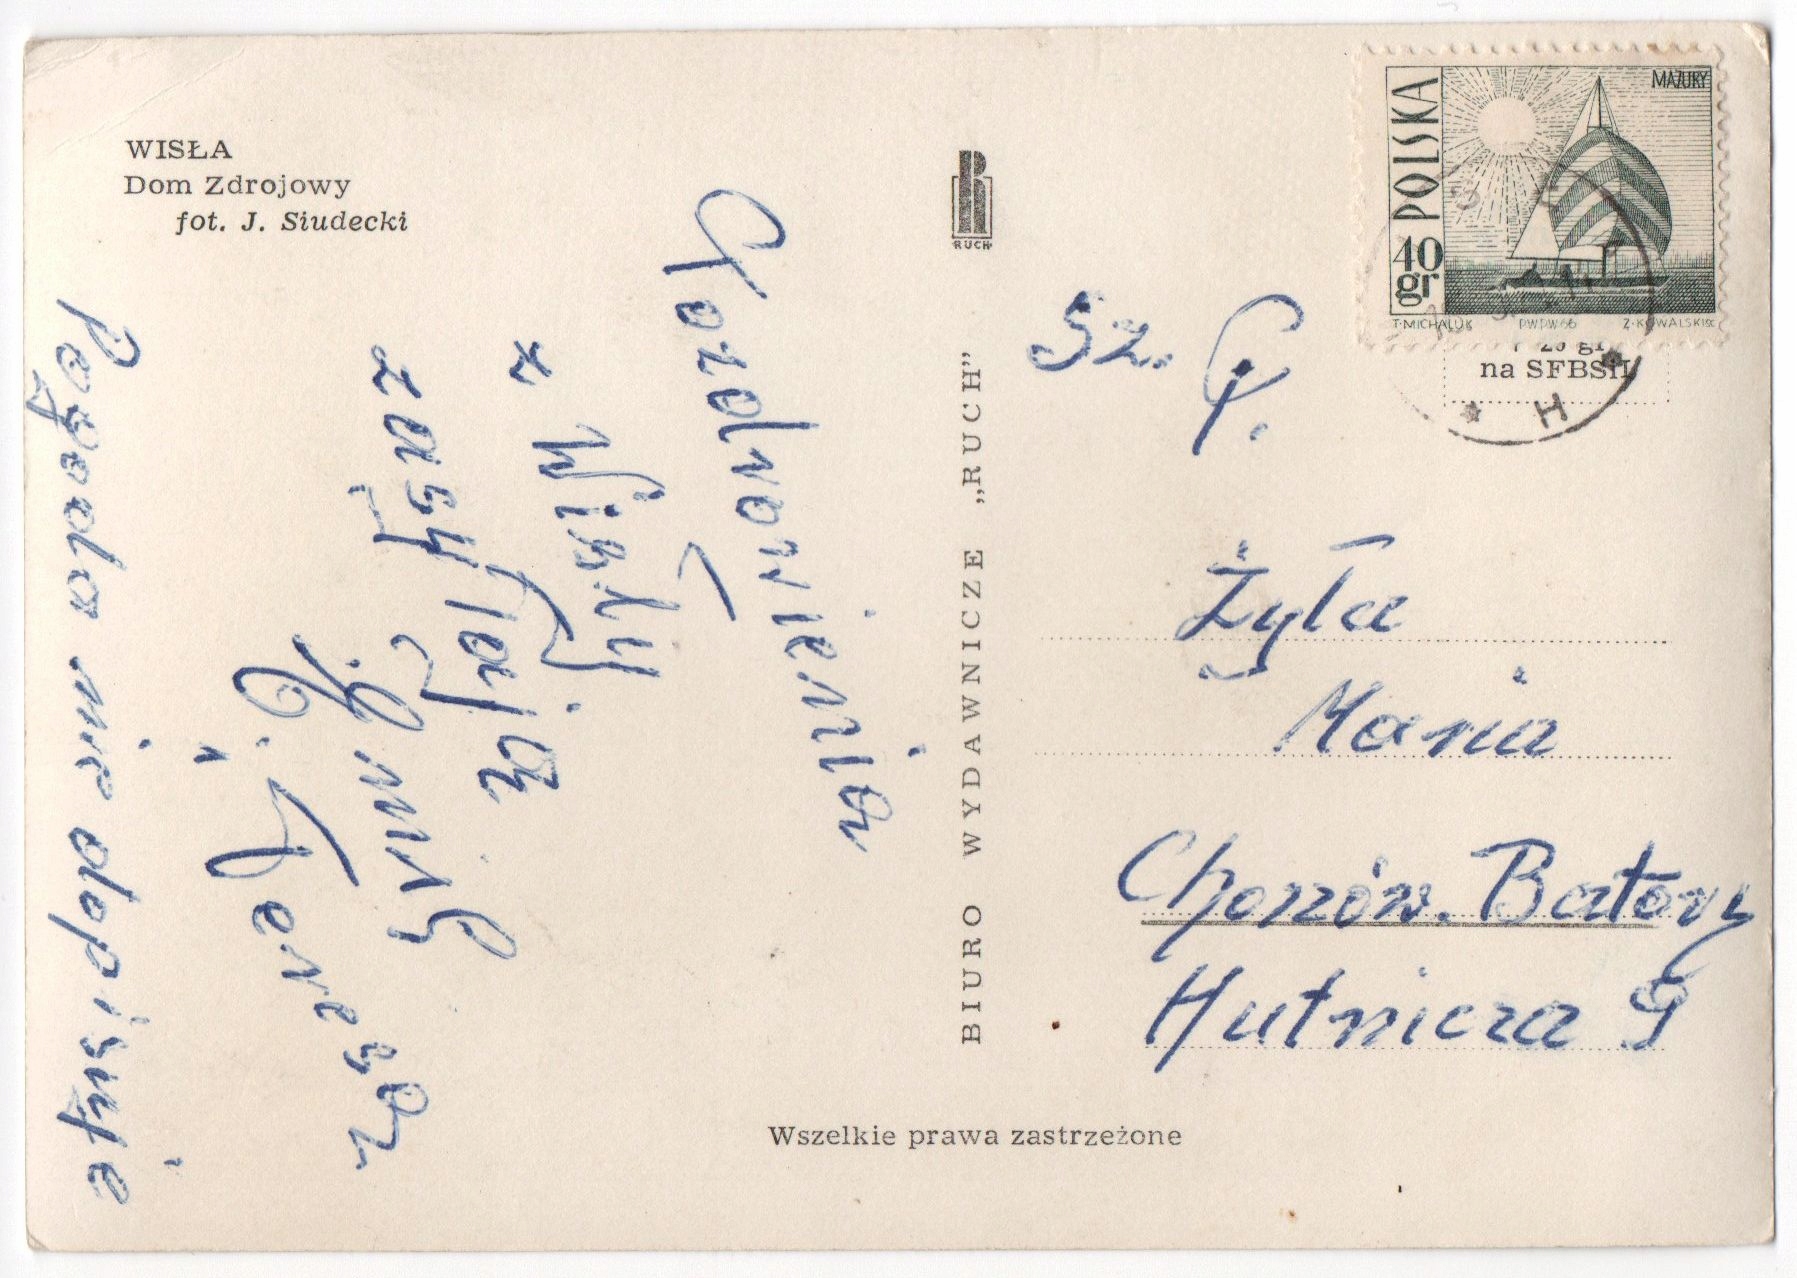 WISŁA
Dom Zdrojowy
fot. J. Siudecki
Pozdrowienia
z Wisły
zasyłają
Emil
i Teresa
Pogoda nie dopisuje
RUCH
BIURO WYDAWNICZE „RUCH”
Wszelkie prawa zastrzeżone
POLSKA
40 gr
MAZURY
T. MICHALUK PWPW 66 Z. KOWALSKI sc.
na SFBSiI
H
Sz. P.
Żyła
Maria
Chorzów. Batory
Hutnicza 9